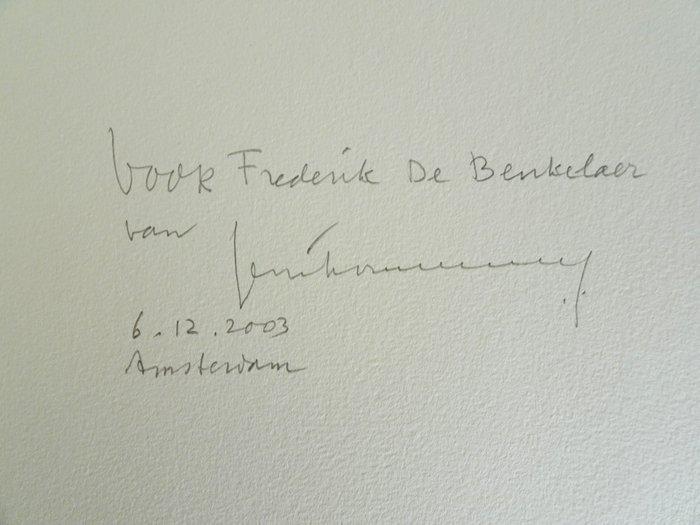 voor Frederik De Benkelaer
van
6.12.2003
Amsterdam